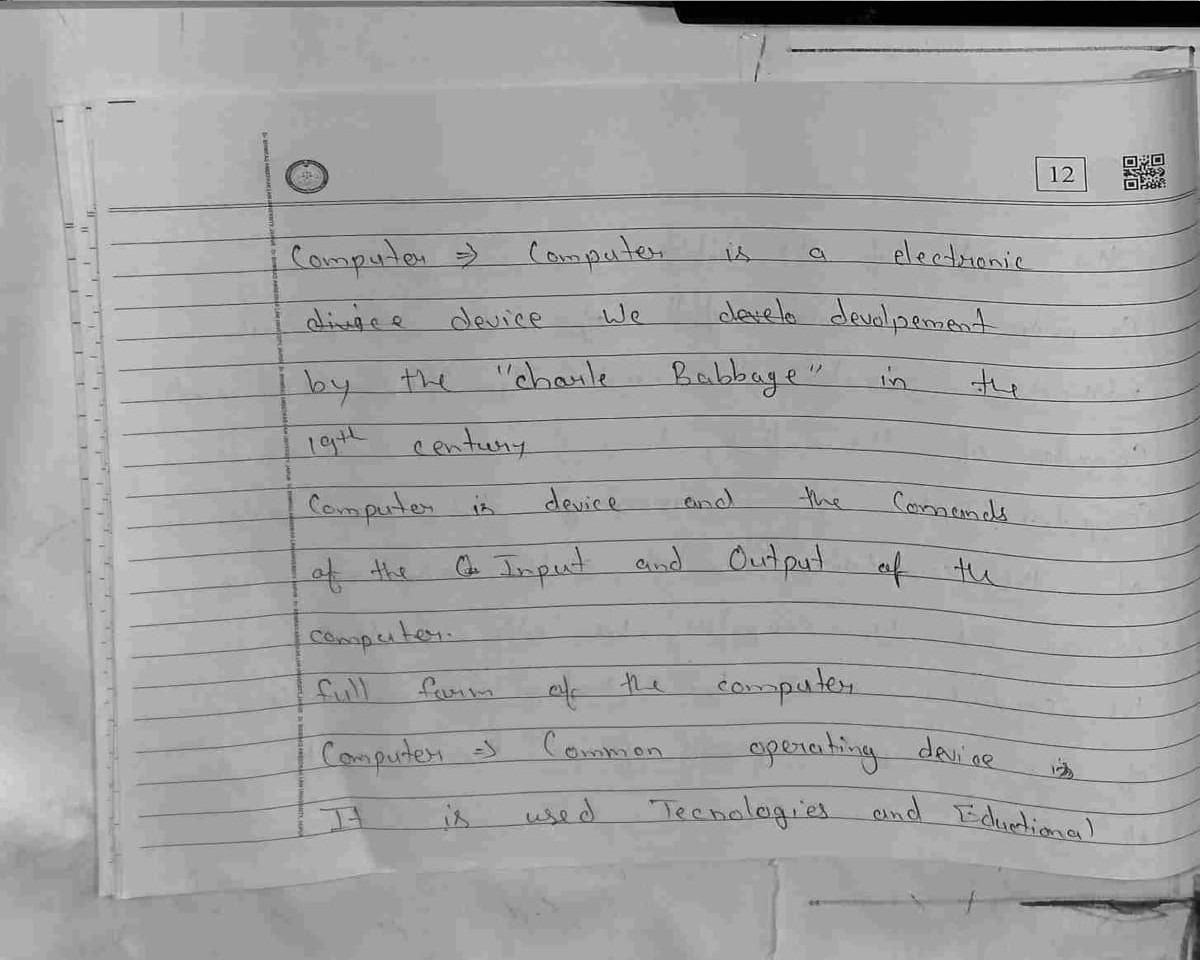 12
Computer ⇒ Computer is a electronic
divice device We develo devolpement
by the "charle Babbage" in the
19th century
Computer is device and the Comands
of the Input and Output of the
computer.
full form of the computer
Computer ⇒ Common operating device is
It is used Tecnologies and Eductional